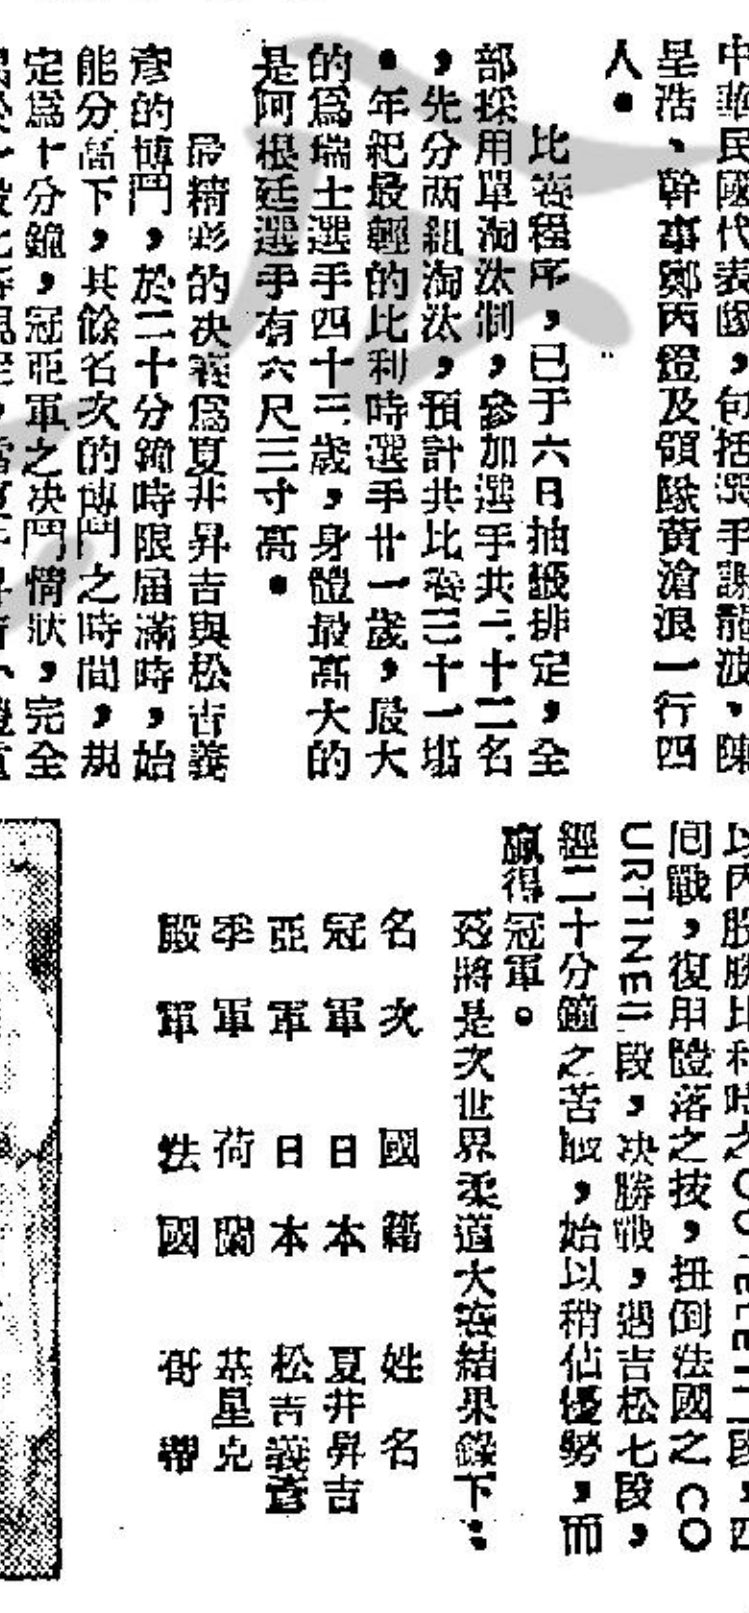 中華民國代表隊，包括選手謝龍波、陳
星浩、幹事鄭丙燈及領隊黃滄浪一行四
人。
比賽程序，已于六日抽籤排定，全
部採用單淘汰制，參加選手共三十二名
，先分兩組淘汰，預計共比賽三十一場
。年紀最輕的比利時選手廿一歲，最大
的爲瑞士選手四十三歲，身體最高大的
是阿根廷選手有六尺三寸高。
最精彩的决賽爲夏井昇吉與松吉義
彥的博鬥，於二十分鐘時限屆滿時，始
能分高下，其餘名次的博鬥之時間，規
定爲十分鐘，冠亞軍之决鬥情狀，完全
間戰，復用體落之技，扭倒法國之CO
URTINE三段，决勝戰，遇吉松七段，
經二十分鐘之苦戰，始以稍佔優勢，而
贏得冠軍。
茲將是次世界柔道大賽結果錄下：
名次 國籍 姓名
冠軍 日本 夏井昇吉
亞軍 日本 松吉義彥
季軍 荷蘭 基星克
殿軍 法國 哥帶